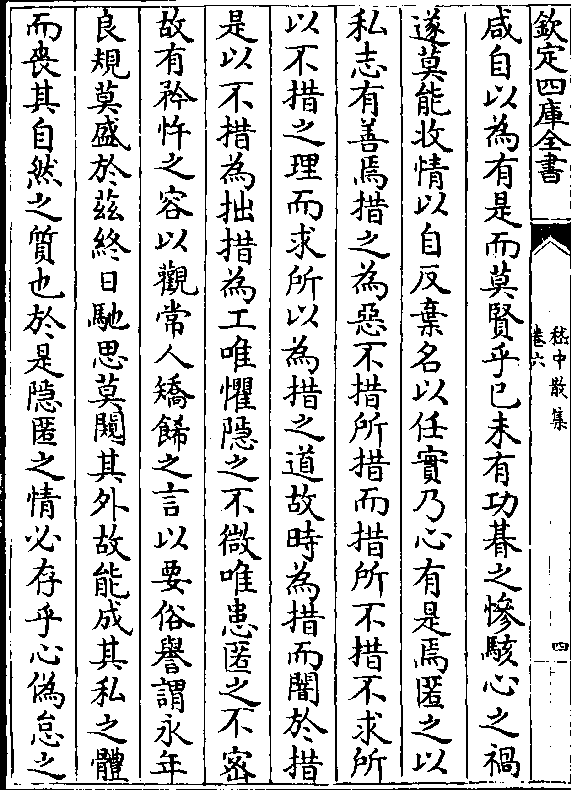 欽定四庫全書
嵇中散集
卷六
四
咸自以為有是而莫賢乎已未有功朞之慘駭心之禍
遂莫能收情以自反棄名以任實乃心有是焉匿之以
私志有善焉措之為惡不措所措而措所不措不求所
以不措之理而求所以為措之道故時為措而闇於措
是以不措為拙措為工唯懼隱之不微唯患匿之不密
故有矜忤之容以觀常人矯餙之言以要俗譽謂永年
良規莫盛於茲終日馳思莫闚其外故能成其私之體
而喪其自然之質也於是隠匿之情必存乎心偽怠之